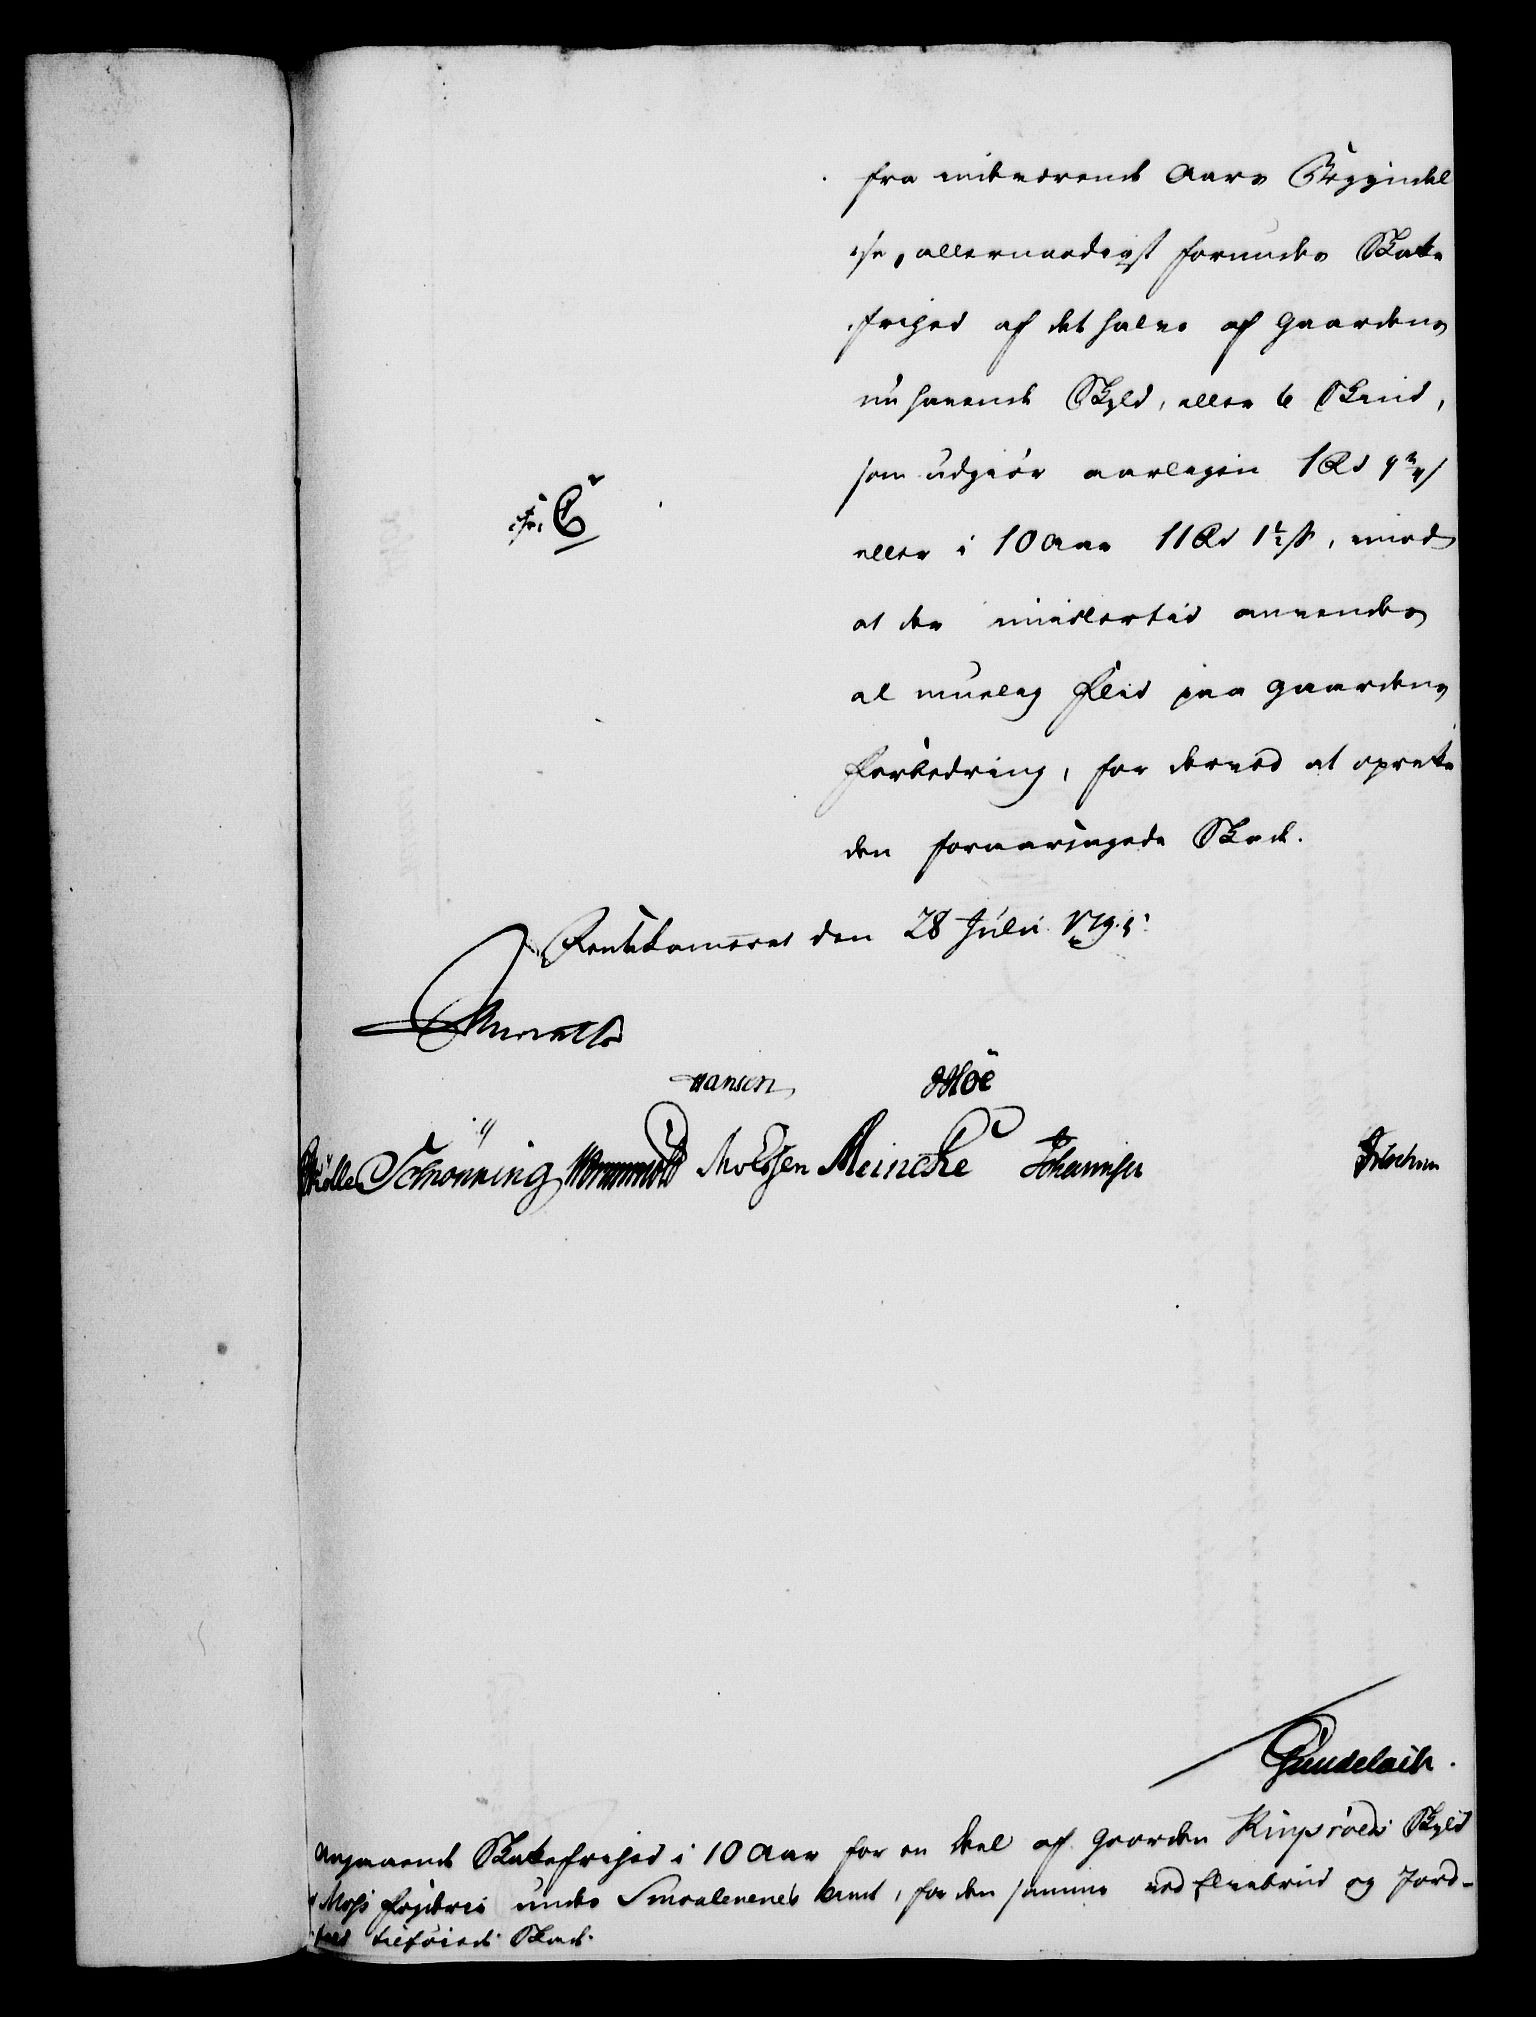 fra indeværende Aars Begyndel
se, allernaadigst forundes Skatte
frihed af det halve af Gaardens
nu havende Skyld, eller 6 Skind,
som udgiør aarligen 1 Rd
eller i 10 Aar 11 Rd 1½ s, imod
at der imidlertid anvendes
al muelig Fliid paa Gaardens
Forbedring, for derved at oprette
den foraarsagede Skade.
Rentekammeret den 28 Julii 179
Hansen Høe
Møller Schønning Wormskiold Moldsen Meincke Johannsen
Gundelach.
Angaaende Skattefrihed i 10 Aar for en Deel af Gaarden Skyld
Moss Fogderie under Smaalenenes Amt, for den samme ved Elvebrud og Jord-
fald tilføiede Skade.